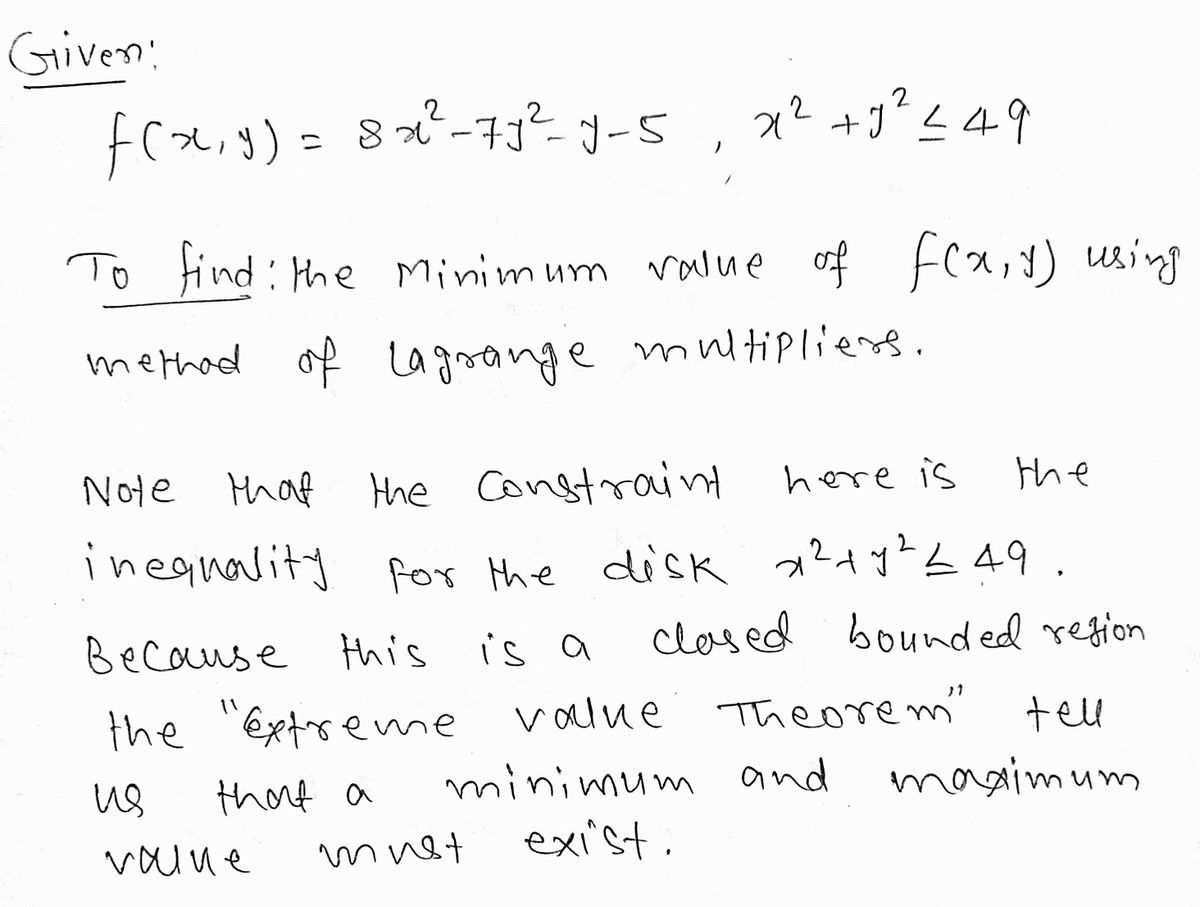 Given:
f(x,y) = 8x²-7y²-y-5 , x²+y² ≤ 49
To find: the Minimum value of f(x,y) using
method of lagrange multipliers.
Note that the Constraint here is the
inequality for the disk x²+y² ≤ 49.
Because this is a closed bounded region
the "Extreme value Theorem" tell
us that a minimum and maximum
value must exist.